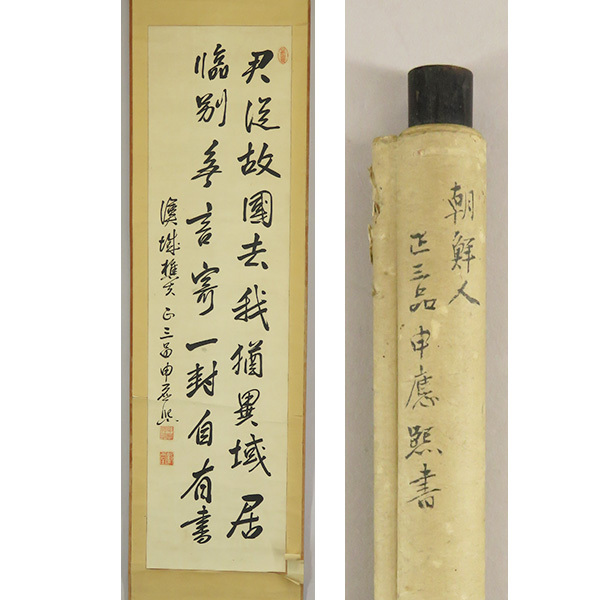 君從故國去我猶異域居
臨別無言寄一封自有書
漢城樵夫 正三品申應熙
朝鮮人
正三品申應熙書